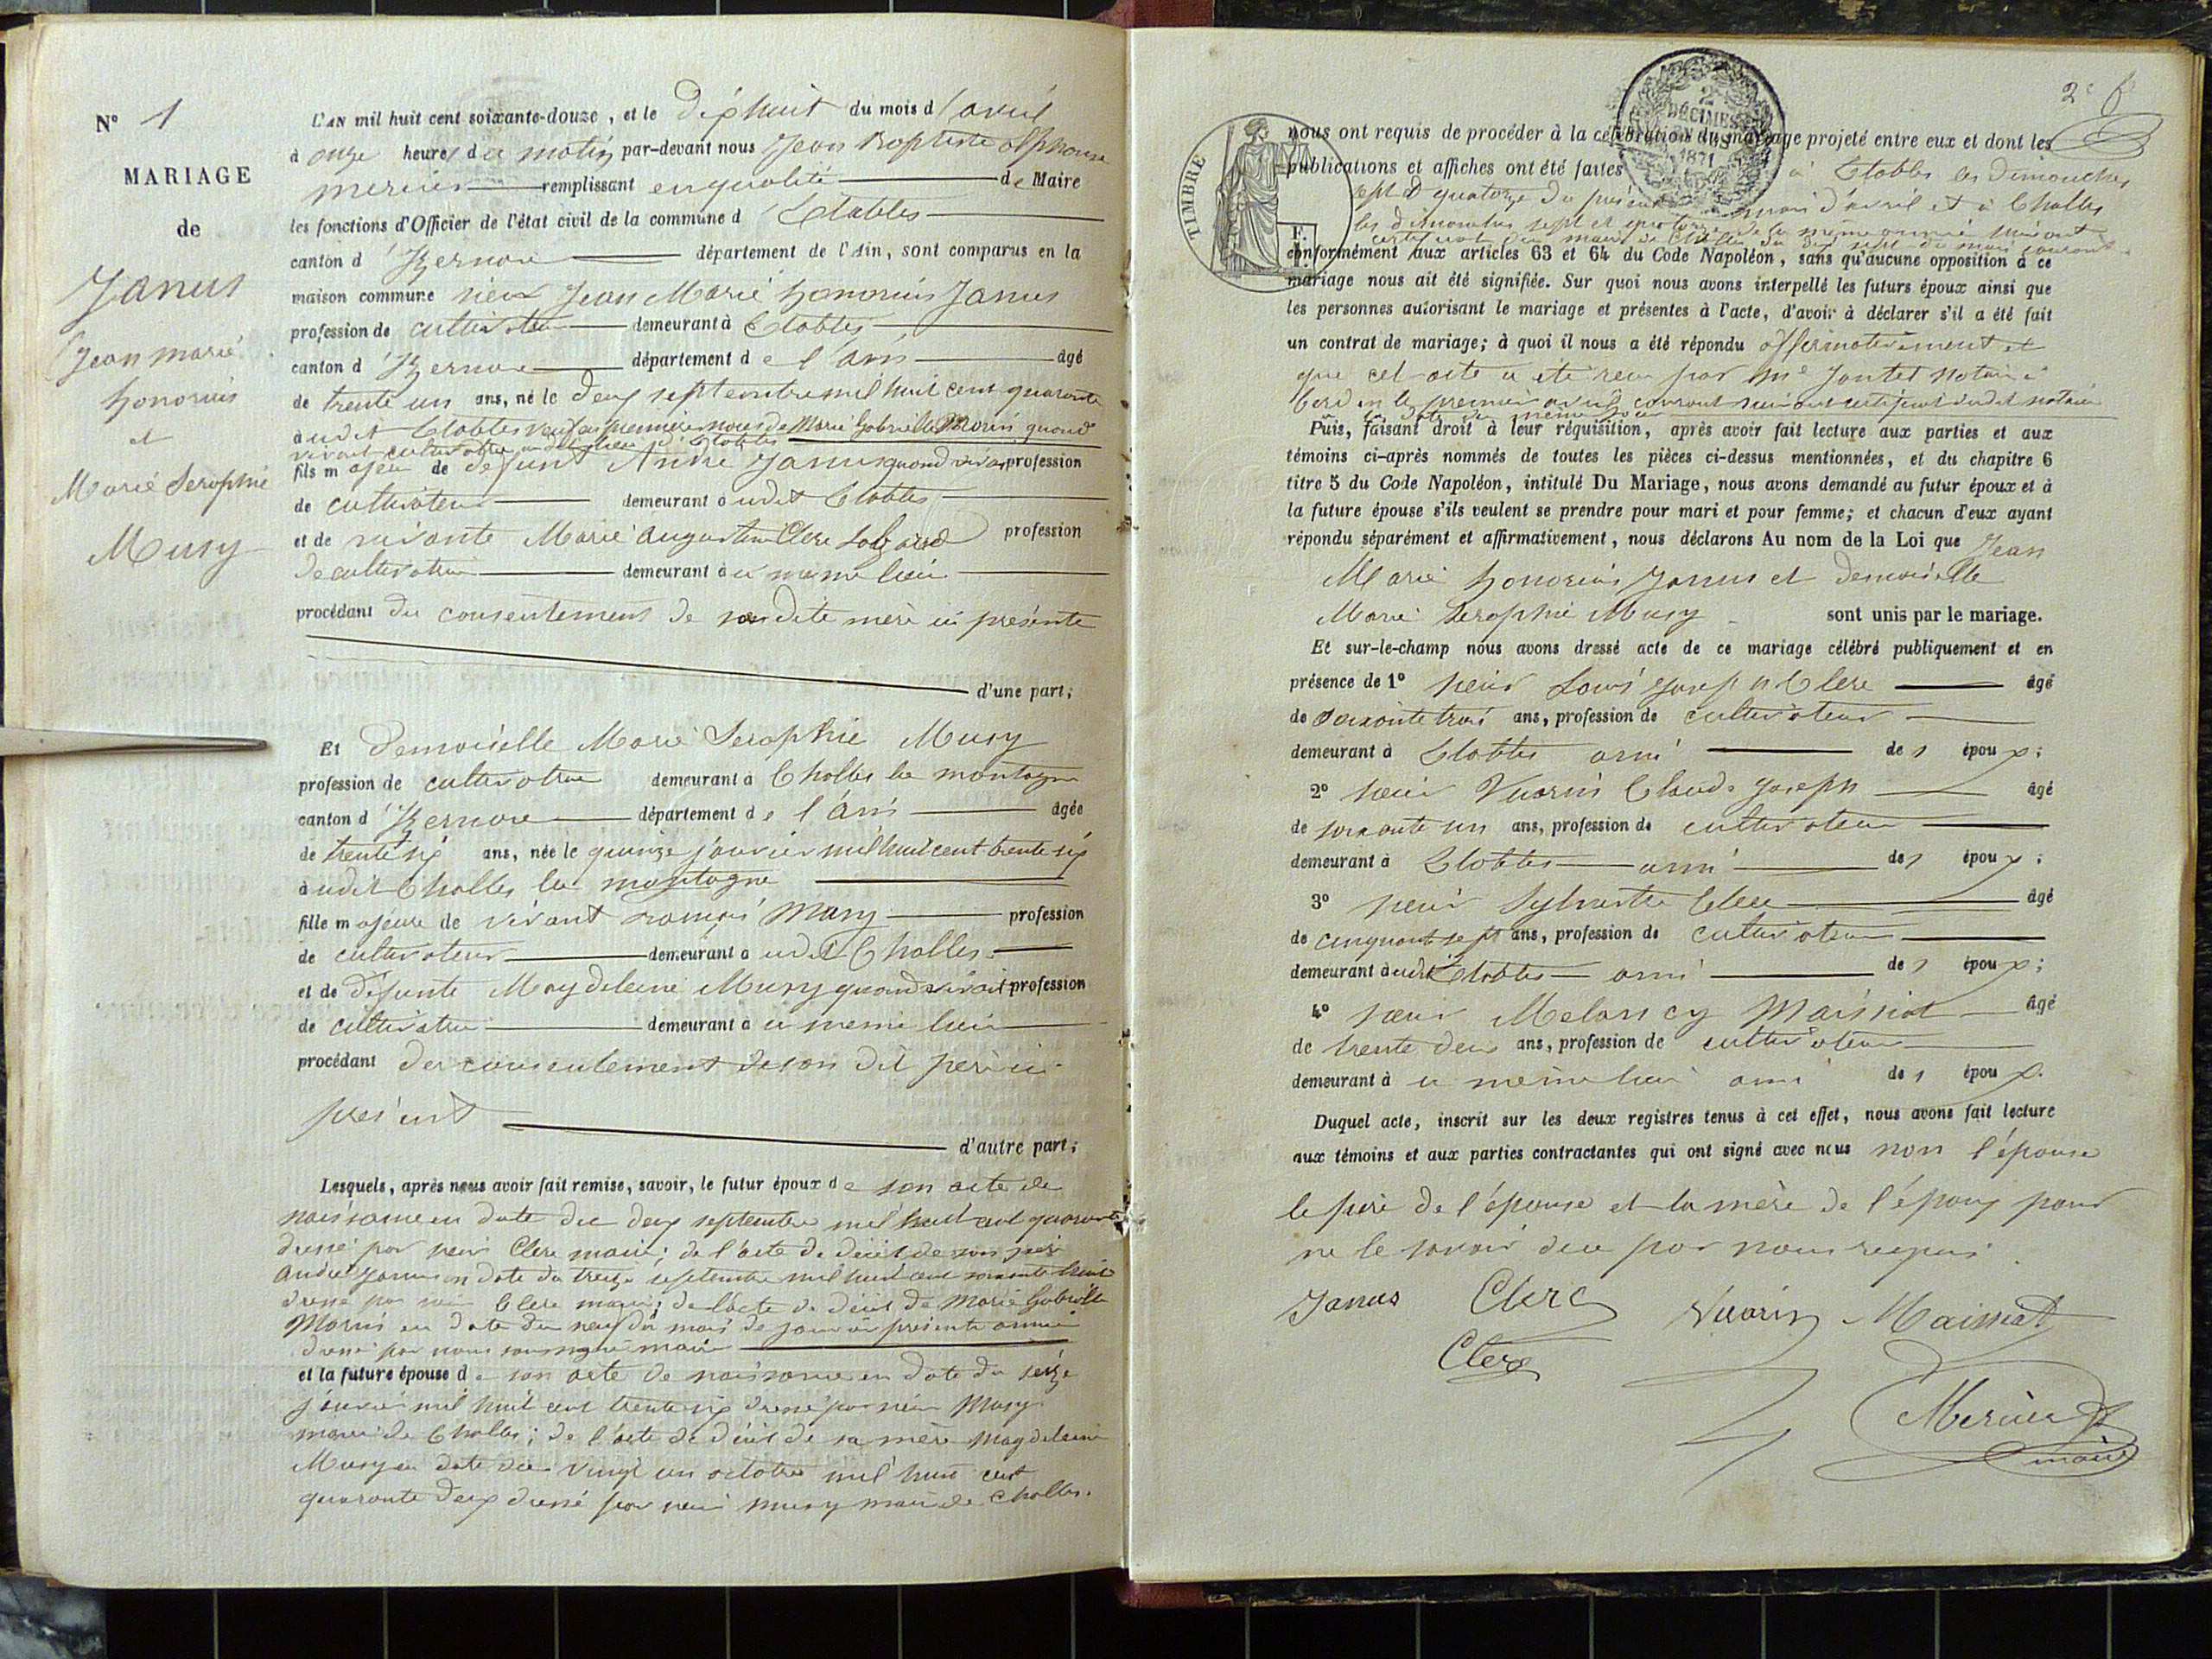 N° 1
MARIAGE
de
Janus
Jean marie
honorius
et
Marie Seraphie
Musy
L'AN mil huit cent soixante-douze, et le dixhuit du mois d'avril
à onze heures du matin par-devant nous Jean Baptiste alphonse
mercier remplissant en qualité de Maire
les fonctions d'Officier de l'état civil de la commune d'Etables
canton d'Izernore département de l'Ain, sont comparus en la
maison commune sieur Jean Marie honorius Janus
profession de cultivateur demeurant à Etables
canton d'Izernore département de l'ain âgé
de trente un ans, né le deux septembre mil huit cent quarante
audit Etables veuf en premières noces de Marie Gabrielle Morin quand
vivait cultivatrice audit lieu d'Etables
fils majeur de defunt André Janus quand vivait profession
de cultivateur demeurant audit Etables
et de vivante Marie augustine Clere profession
de cultivatrice demeurant à ce meme lieu
procédant du consentement de sa dite mère ici présente
d'une part;
Et Demoiselle Marie Seraphie Musy
profession de cultivatrice demeurant à Challes la montagne
canton d'Izernore département de l'ain âgée
de trente six ans, née le quinze janvier mil huit cent trente six
audit Challes la montagne
fille majeure de vivant françois Musy profession
de cultivateur demeurant audit Challes
et de défunte Magdeleine Musy quand vivait profession
de cultivatrice demeurant à ce meme lieu
procédant du consentement de son dit père ici
présent
d'autre part;
Lesquels, après nous avoir fait remise, savoir, le futur époux de son acte de
naissance en date du deux septembre mil huit cent quarante
dressé par sieur Clere maire; de l'acte de décès de son père
André Janus en date du treize septembre mil huit cent soixante huit
dressé par sieur Clere maire; de l'acte de décès de Marie Gabrielle
Morin en date du neuf du mois de janvier présente année
dressé par nous soussigné maire
et la future épouse de son acte de naissance en date du seize
janvier mil huit cent trente six dressé par sieur Musy
maire de Challes; de l'acte de décès de sa mère Magdeleine
Musy en date du vingt un octobre mil huit cent
quarante deux dressé par sieur musy maire de Challes.
2e f
TIMBRE
2
DÉCIMES
1871
nous ont requis de procéder à la célébration du mariage projeté entre eux et dont les
publications et affiches ont été faites à Etables les dimanches
sept et quatorze du présent mois d'avril et à Challes
les dimanches sept et quatorze de la même année suivant
certificat du maire de Challes du dix sept du mois courant
conformément aux articles 63 et 64 du Code Napoléon, sans qu'aucune opposition à ce
mariage nous ait été signifiée. Sur quoi nous avons interpellé les futurs époux ainsi que
les personnes autorisant le mariage et présentes à l'acte, d'avoir à déclarer s'il a été fait
un contrat de mariage; à quoi il nous a été répondu affirmativement et
que cet acte a été reçu par Me Jantet notaire à
le premier avril courant suivant certificat dudit notaire
la date du même jour
Puis, faisant droit à leur réquisition, après avoir fait lecture aux parties et aux
témoins ci-après nommés de toutes les pièces ci-dessus mentionnées, et du chapitre 6
titre 5 du Code Napoléon, intitulé Du Mariage, nous avons demandé au futur époux et à
la future épouse s'ils veulent se prendre pour mari et pour femme; et chacun d'eux ayant
répondu séparément et affirmativement, nous déclarons Au nom de la Loi que Jean
Marie honorius Janus et demoiselle
Marie Seraphie Musy sont unis par le mariage.
Et sur-le-champ nous avons dressé acte de ce mariage célébré publiquement et en
présence de 1° sieur Louis Joseph Clere âgé
de soixante trois ans, profession de cultivateur
demeurant à Etables ami de l'époux;
2° sieur Vuarin Claude Joseph âgé
de soixante un ans, profession de cultivateur
demeurant à Etables ami de l'époux;
3° sieur Sylvestre Clere âgé
de cinquante sept ans, profession de cultivateur
demeurant audit Etables ami de l'époux;
4° sieur Melancy Maissiat âgé
de trente deux ans, profession de cultivateur
demeurant à ce même lieu ami de l'époux.
Duquel acte, inscrit sur les deux registres tenus à cet effet, nous avons fait lecture
aux témoins et aux parties contractantes qui ont signé avec nous non l'épouse
le père de l'épouse et la mère de l'époux pour
ne le savoir de ce par nous requis.
Janus Clerc Vuarin Maissiat
Clerc
Mercier
maire